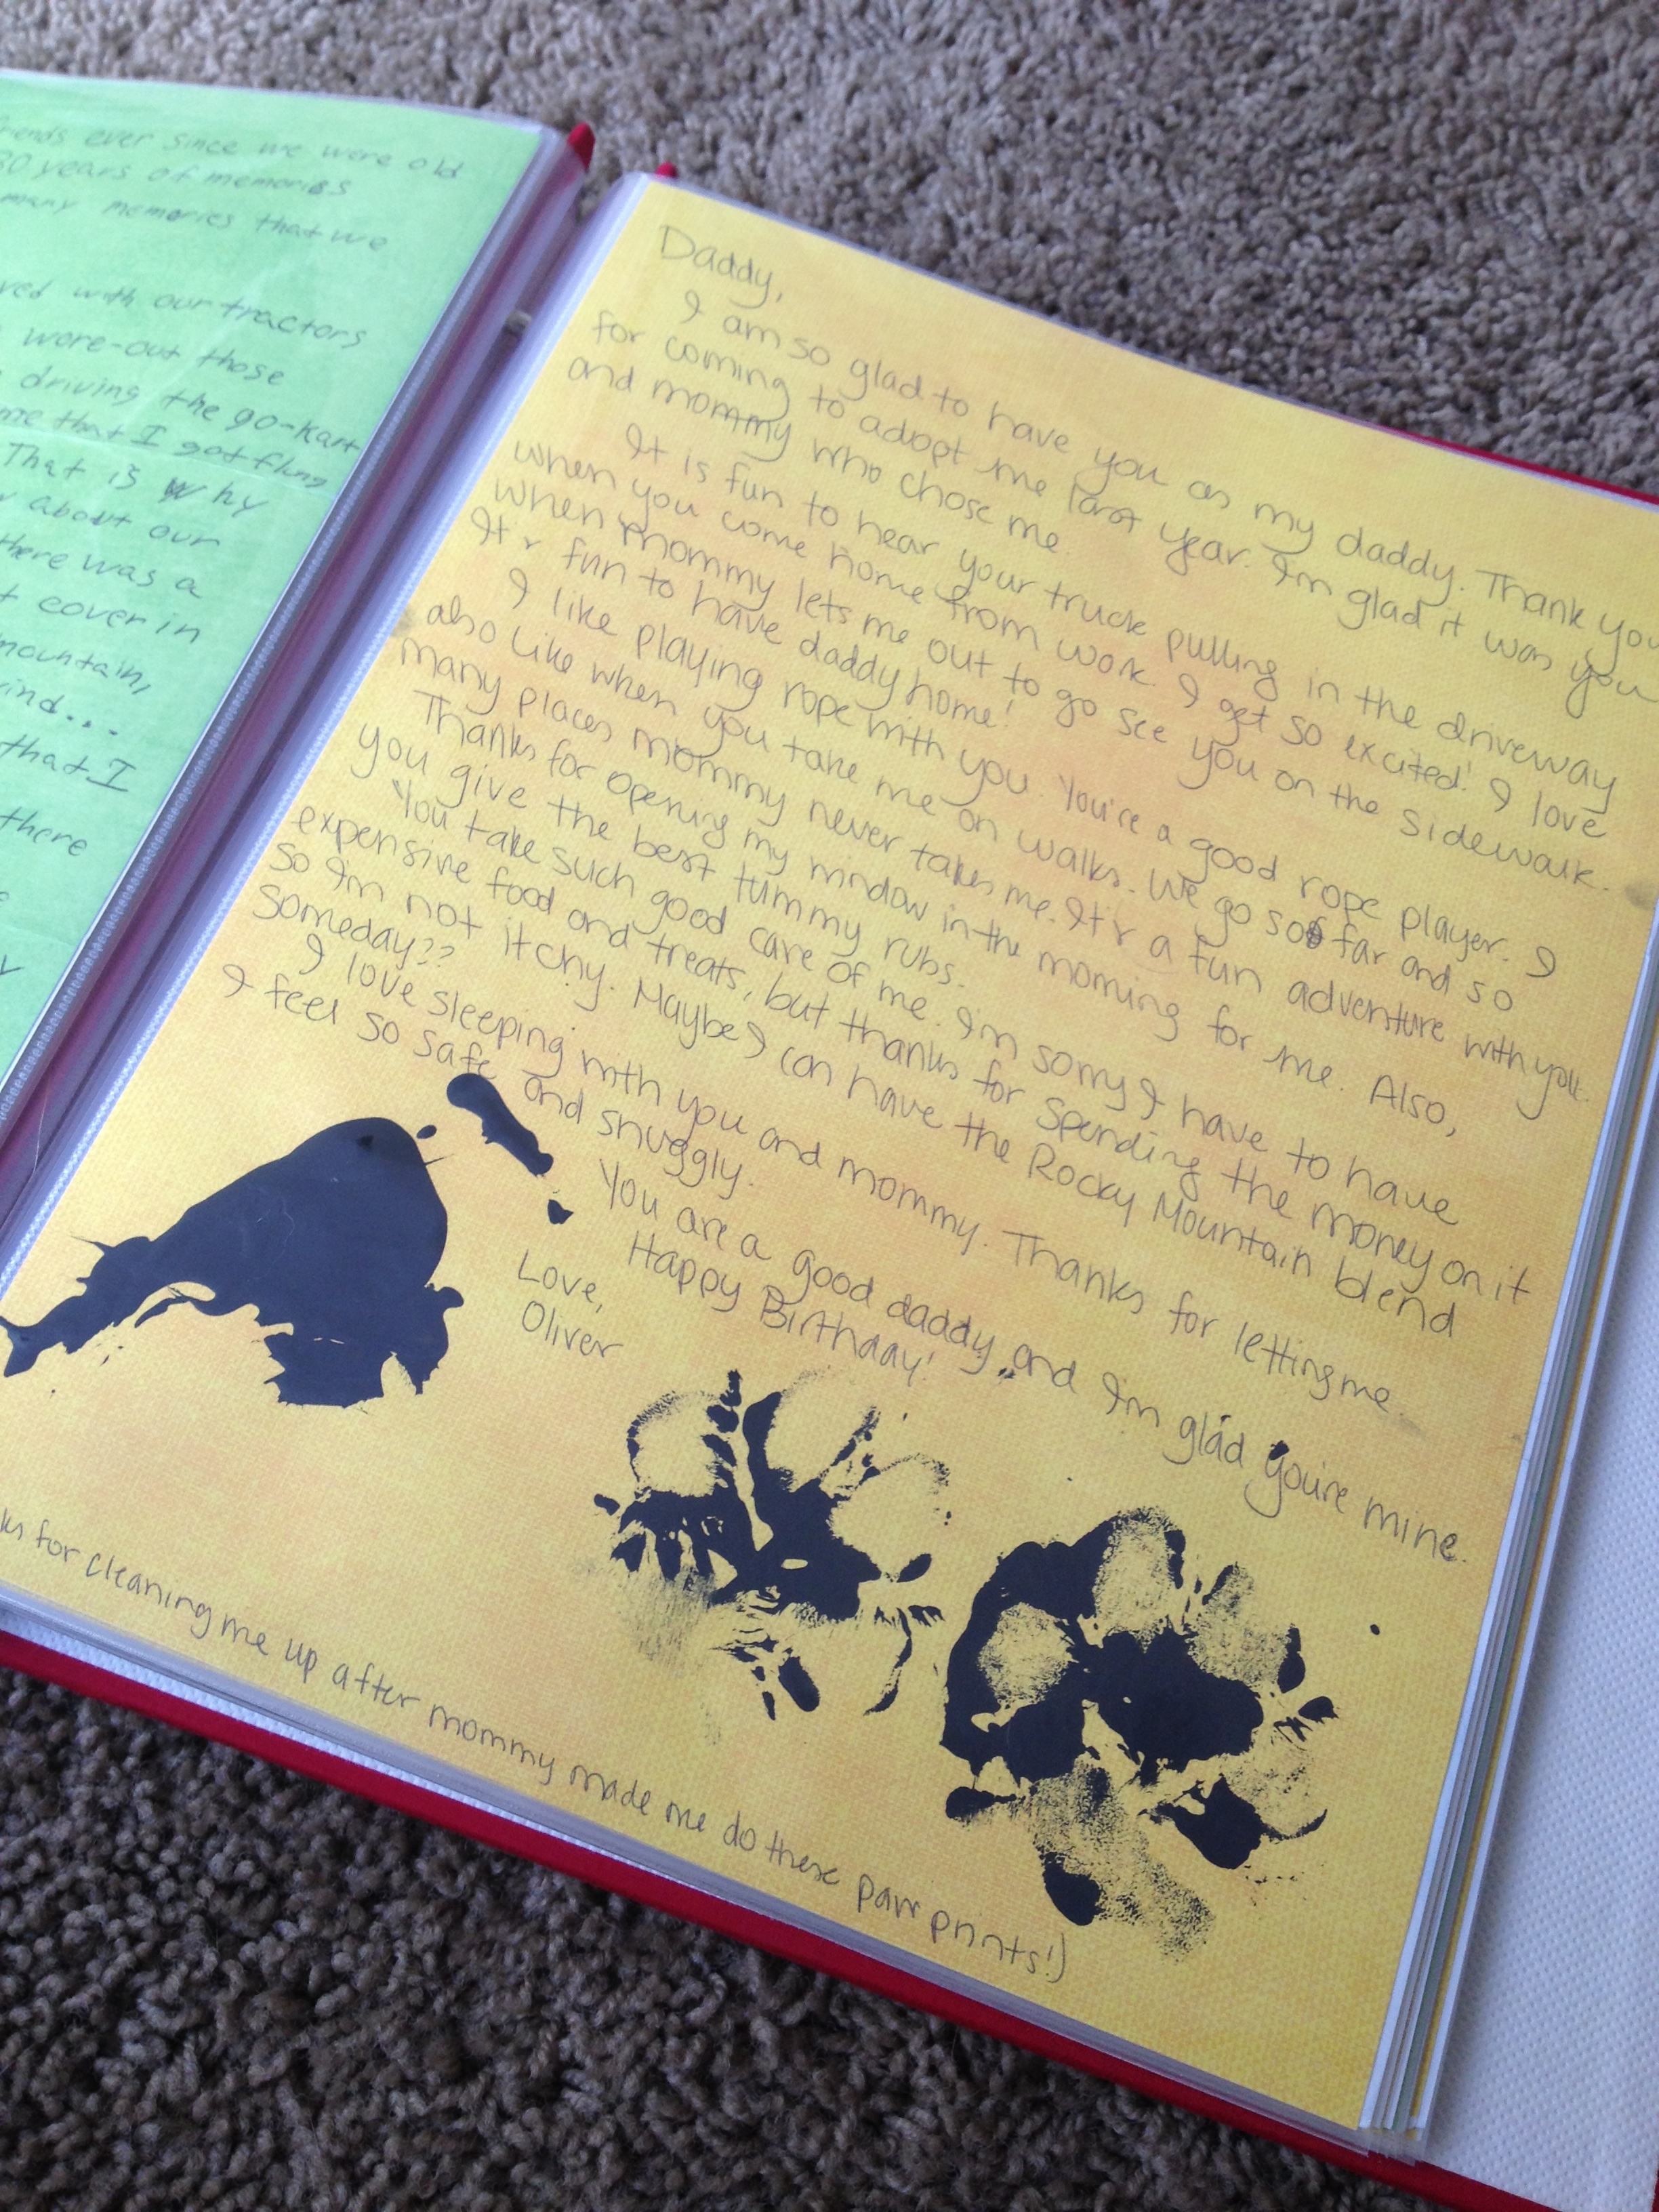 friends ever since we were old
30 years of memories
many memories that we
with our tractors
wore-out those
driving the go-kart
that I got flung
That is why
about our
there was a
cover in
mountain,
that I
there
Daddy,
I am so glad to have you as my daddy. Thank you
for coming to adopt me last year. I'm glad it was you
and mommy who chose me.
It is fun to hear your truck pulling in the driveway
when you come home from work. I get so excited! I love
when mommy lets me out to go see you on the sidewalk.
It's fun to have daddy home!
I like playing rope with you. You're a good rope player. I
also like when you take me on walks. We go so far and so
many places mommy never takes me. It's a fun adventure with you.
Thanks for opening my window in the morning for me. Also,
you give the best tummy rubs.
You take such good care of me. I'm sorry I have to have
expensive food and treats, but thanks for spending the money on it
so I'm not itchy. Maybe I can have the Rocky Mountain blend
someday??
I love sleeping with you and mommy. Thanks for letting me.
I feel so safe and snuggly.
You are a good daddy and I'm glad you're mine.
Happy Birthday!
Love,
Oliver
for cleaning me up after mommy made me do these paw prints!)